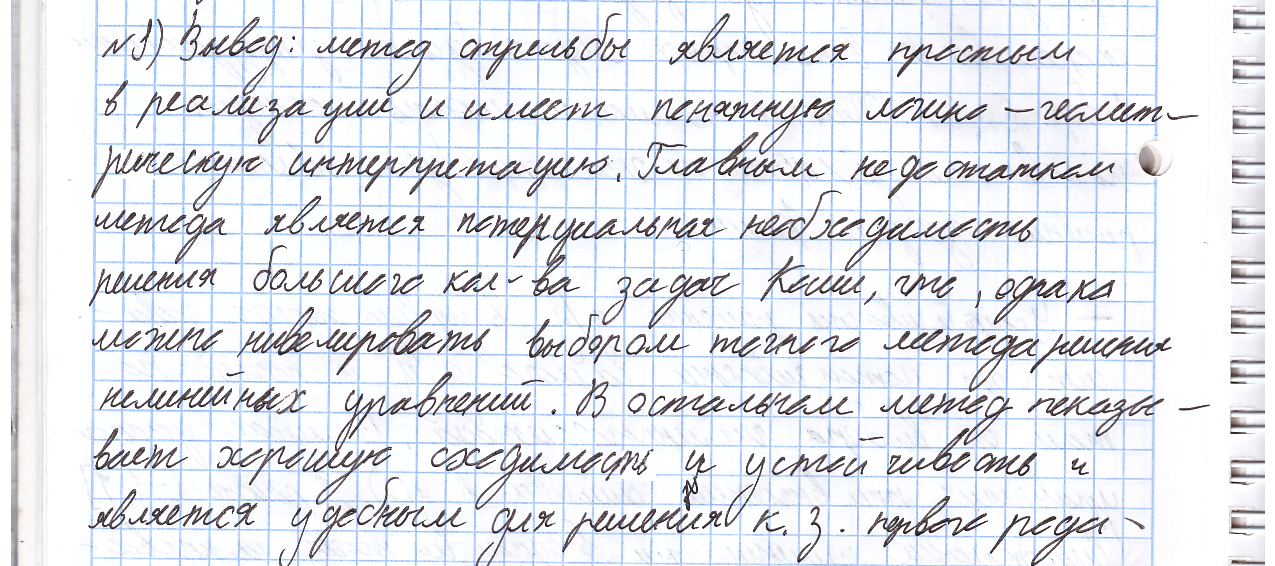 №9) Вывод: метод стрельбы является простым
в реализации и имеет понятную логико-геомет-
рическую интерпретацию. Главным недостатком
метода является потенциальная необходимость
решения большого кол-ва задач Коши, что, однако
можно нивелировать выбором точного метода решения
нелинейных уравнений. В остальном метод показы-
вает хорошую сходимость и устойчивость и
является удобным для решения к.з. первого рода